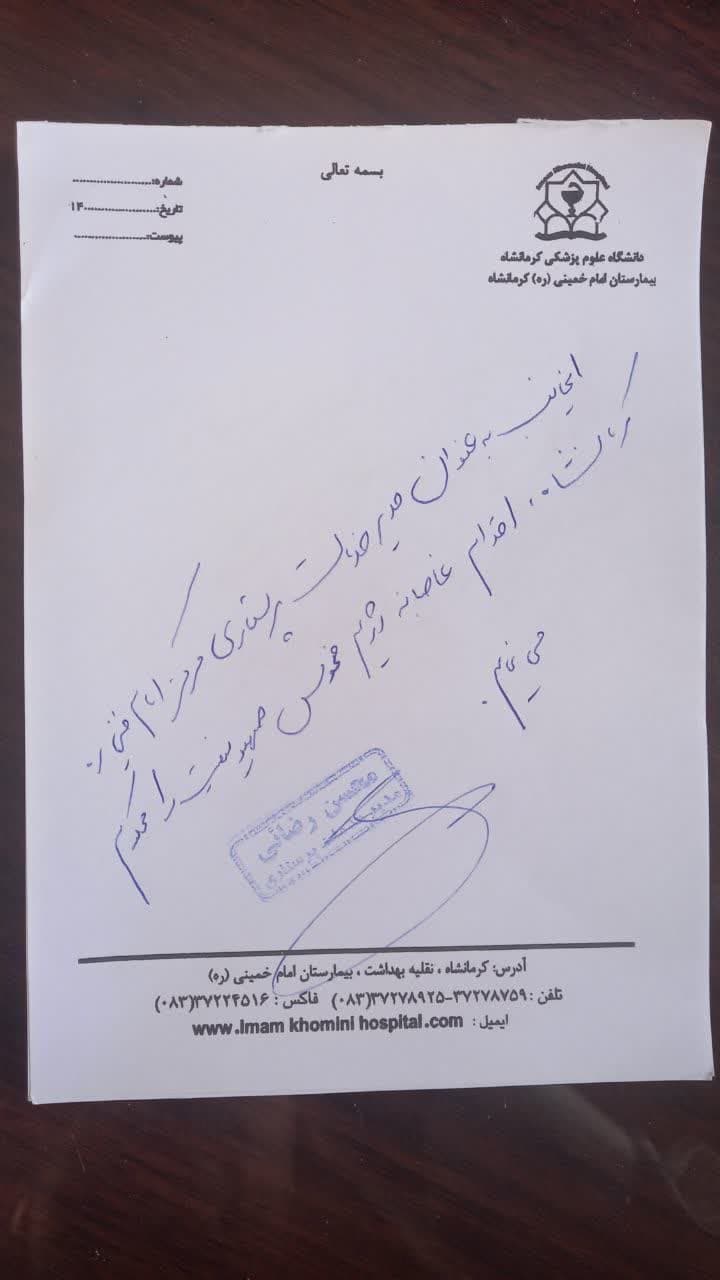 بسمه تعالی
شماره:........................
تاریخ:....................۱۴۰
پیوست:........................
دانشگاه علوم پزشکی کرمانشاه
بیمارستان امام خمینی (ره) کرمانشاه
اینجانب به عنوان مدیر خدمات پرستاری مرکز امام خمینی ره
کرمانشاه، اقدام غاصبانه رژیم منحوس صهیونیست را محکوم
می نمایم.
محسن رضائی
مدیر پرستاری
آدرس: کرمانشاه ، نقلیه بهداشت ، بیمارستان امام خمینی (ره)
تلفن : ۳۷۲۷۸۷۵۹-۳۷۲۷۸۹۲۵(۰۸۳) فاکس : ۳۷۲۲۴۵۱۶(۰۸۳)
ایمیل : www.Imam khomini hospital.com